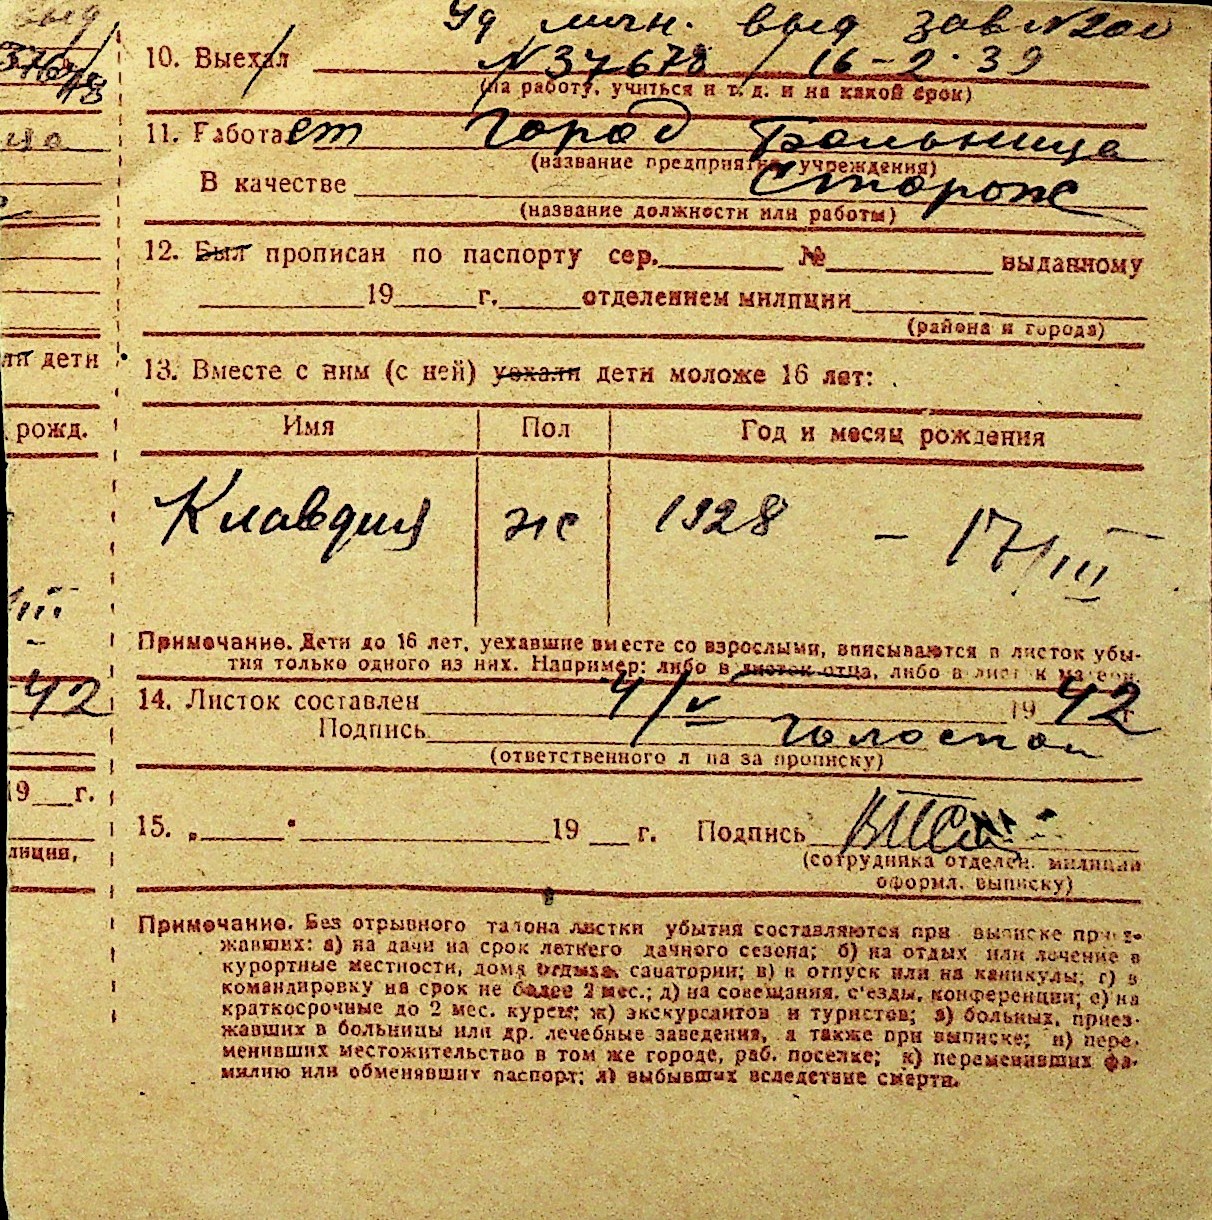 Уд личн. выд зав №200
10. Выехал №37678 / 16-2.39
(на работу, учиться и т. д. и на какой срок)
11. Работает город Больница
(название предприятия, учреждения)
В качестве Сторож
(название должности или работы)
12. Был прописан по паспорту сер. № выданному
19 г. отделением милиции
(района и города)
13. Вместе с ним (с ней) уехали дети моложе 16 лет:
дети
рожд.
Имя Пол Год и месяц рождения
Клавдия ж 1928 - 17/III
Примечание. Дети до 16 лет, уехавшие вместе со взрослыми, вписываются в листок убы-
тия только одного из них. Например: либо в листок отца, либо в листок матери.
42
14. Листок составлен 4/V 1942 г.
Подпись
(ответственного лица за прописку)
19 г.
15. „ " 19 г. Подпись
лиции,
(сотрудника отделен. милиции
оформл. выписку)
Примечание. Без отрывного талона листки убытия составляются при выписке приез-
жавших: а) на дачи на срок летнего дачного сезона; б) на отдых или лечение в
курортные местности, дома отдыха, санатории; в) в отпуск или на каникулы; г) в
командировку на срок не более 2 мес.; д) на совещания, с'езды, конференции; е) на
краткосрочные до 2 мес. курсы; ж) экскурсантов и туристов; з) больных, приез-
жавших в больницы или др. лечебные заведения, а также при выписке; и) пере-
менивших местожительство в том же городе, раб. поселке; к) переменивших фа-
милию или обменявших паспорт; л) выбывших вследствие смерти.